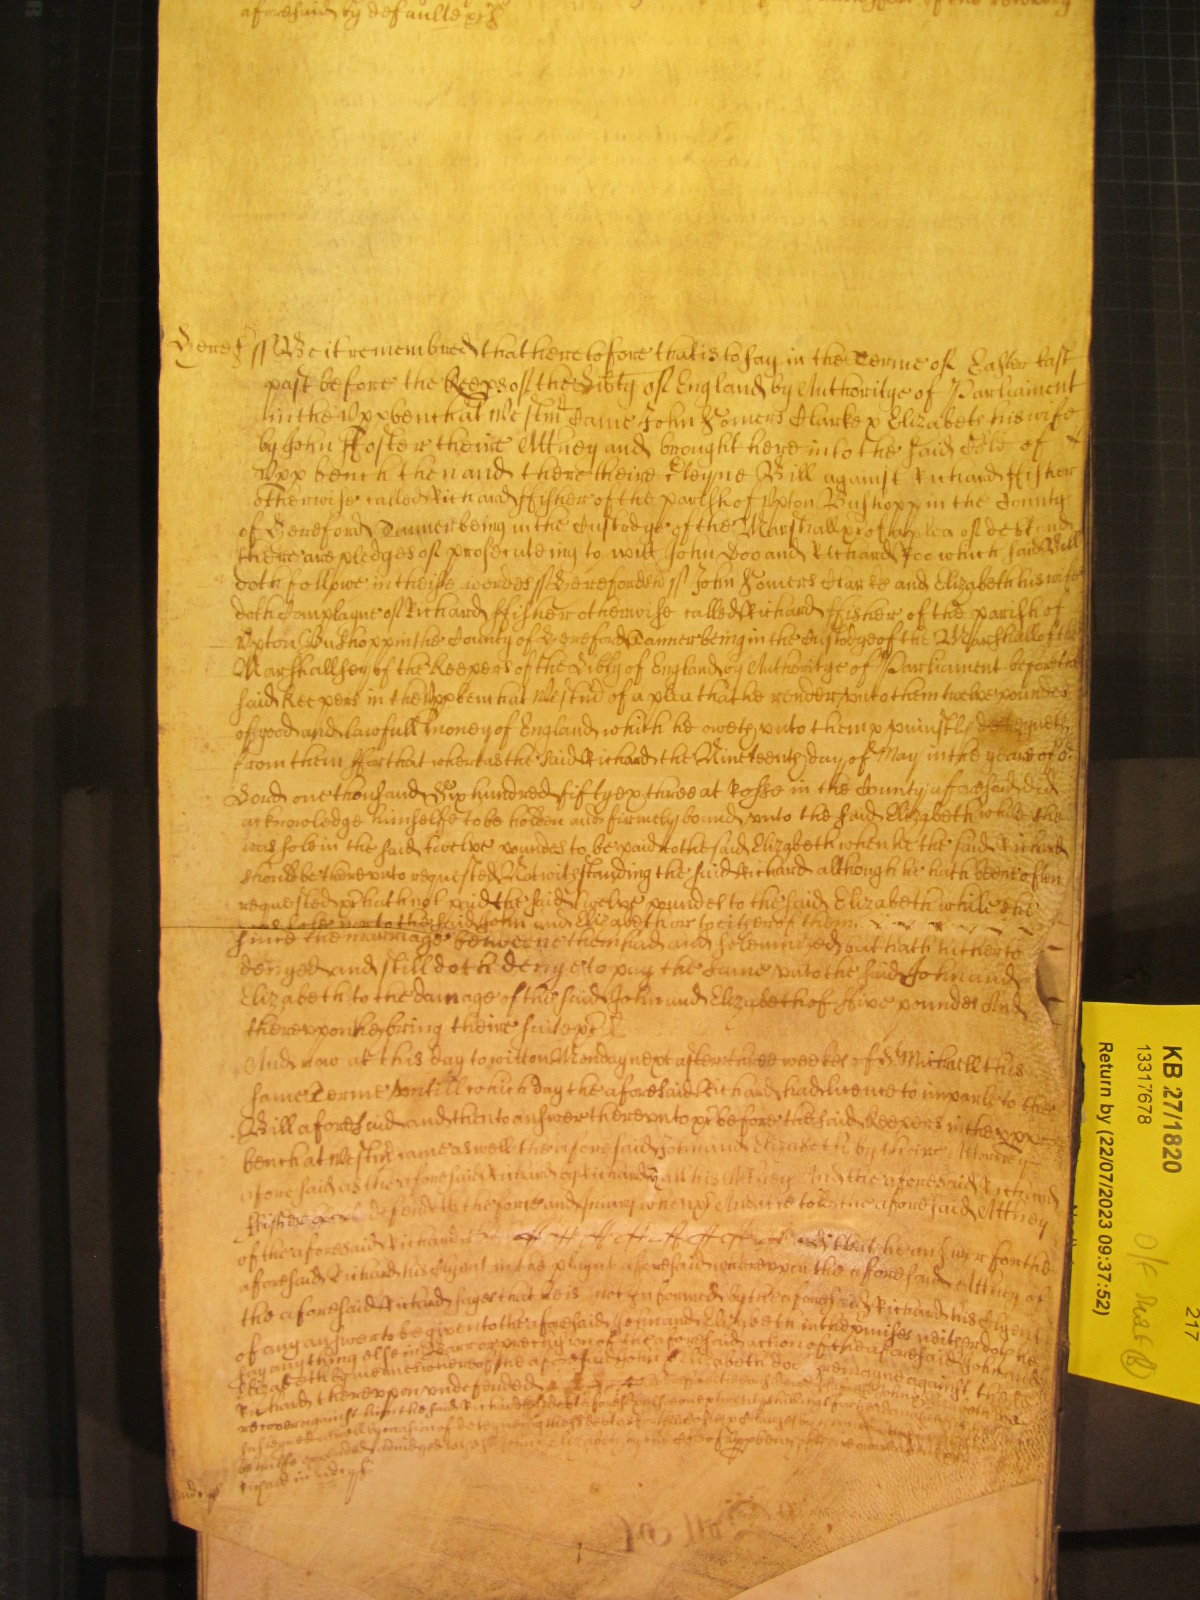 aforesaid by defaulte &c
Heref ss Be it remembred that heretofore that is to say in the Terme of Easter last
past before the Keeps of the Libty of England by Authoritye of Parliament
in the Uppbench at Westmr came John Somers Clarke & Elizabeth his wife
by John Ffoster theire Attney and brought here into the said Cort of
Uppbench then and there theire cteyne Bill against Richard Ffisher
otherwise called Richard Ffisher of the parish of Upton Bushopp in the County
of Hereford Tanner being in the Custodye of the Marshall &c of a plea of debt and
there are pledges of prosecuteing to witt John Doo and Richard Roo which said Bill
doth followe in theise wordes ss Hereford ss John Somers Clarke and Elizabeth his wife
doth Complayne of Richard Ffisher otherwise called Richard Ffisher of the parish of
Upton Bushopp in the County of Hereford Tanner being in the Custodye of the Marshall of the
Marshallsey of the Keepers of the Libty of England by Authoritye of Parliament before the
said Keepers in the Uppbench at Westmr of a plea that he render unto them twelve poundes
of good and lawfull money of England which he oweth unto them & uniustly deteyneth
from them Ffor that whereas the said Richard the Nineteenth day of May in the yeare of or
Lord one thousand Six hundred fiftye & three at Rosse in the County aforesaid did
acknowledge himselfe to be holden and firmely bound unto the said Elizabeth while she
was sole in the said twelve poundes to be paid to the said Elizabeth when he the said Richard
should be thereunto requested Notwithstanding the said Richard although he hath beene often
requested &c hath not paid the said twelve poundes to the said Elizabeth while she
was sole nor to the said John and Elizabeth or to either of them
since the marriage betweene them had and solemnized but hath hitherto
denyed and still doth denye to pay the same unto the said John and
Elizabeth to the damage of the said John and Elizabeth of Ffive poundes And
thereuppon they bring theire suite &c
And now at this day to witt on Monday next after three weekes of St Michaell this
same Terme untill which day the aforesaid Richard had licence to imparle to the
Bill aforesaid and then to answer thereunto &c before the said Keepers in the Uppe
bench at Westmr came aswell the aforesaid John and Elizabeth by theire Attorney
aforesaid as the aforesaid Richard by Richard his Attney And the aforesaid Richard
Ffisher defendeth the force and iniury when &c And the aforesaid Attney
of the aforesaid Richard that he answer for the
aforesaid Richard his Clyent in the playnt aforesaid whereuppon the aforesaid Attney of
the aforesaid Richard sayes that he is not informed by the aforesaid Richard his Clyent
of any answer to be given to the aforesaid John and Elizabeth in the premises neither doth he
say any thing else in barr or preclusion of the aforesaid action of the aforesaid John and
Elizabeth by meanes whereof the aforesaid John & Elizabeth doe remayne against the
Richard thereuppon undefended
recover against him the said Richard
KB 27/1820
13317678
Return by (22/07/2023 09:37:52)
217